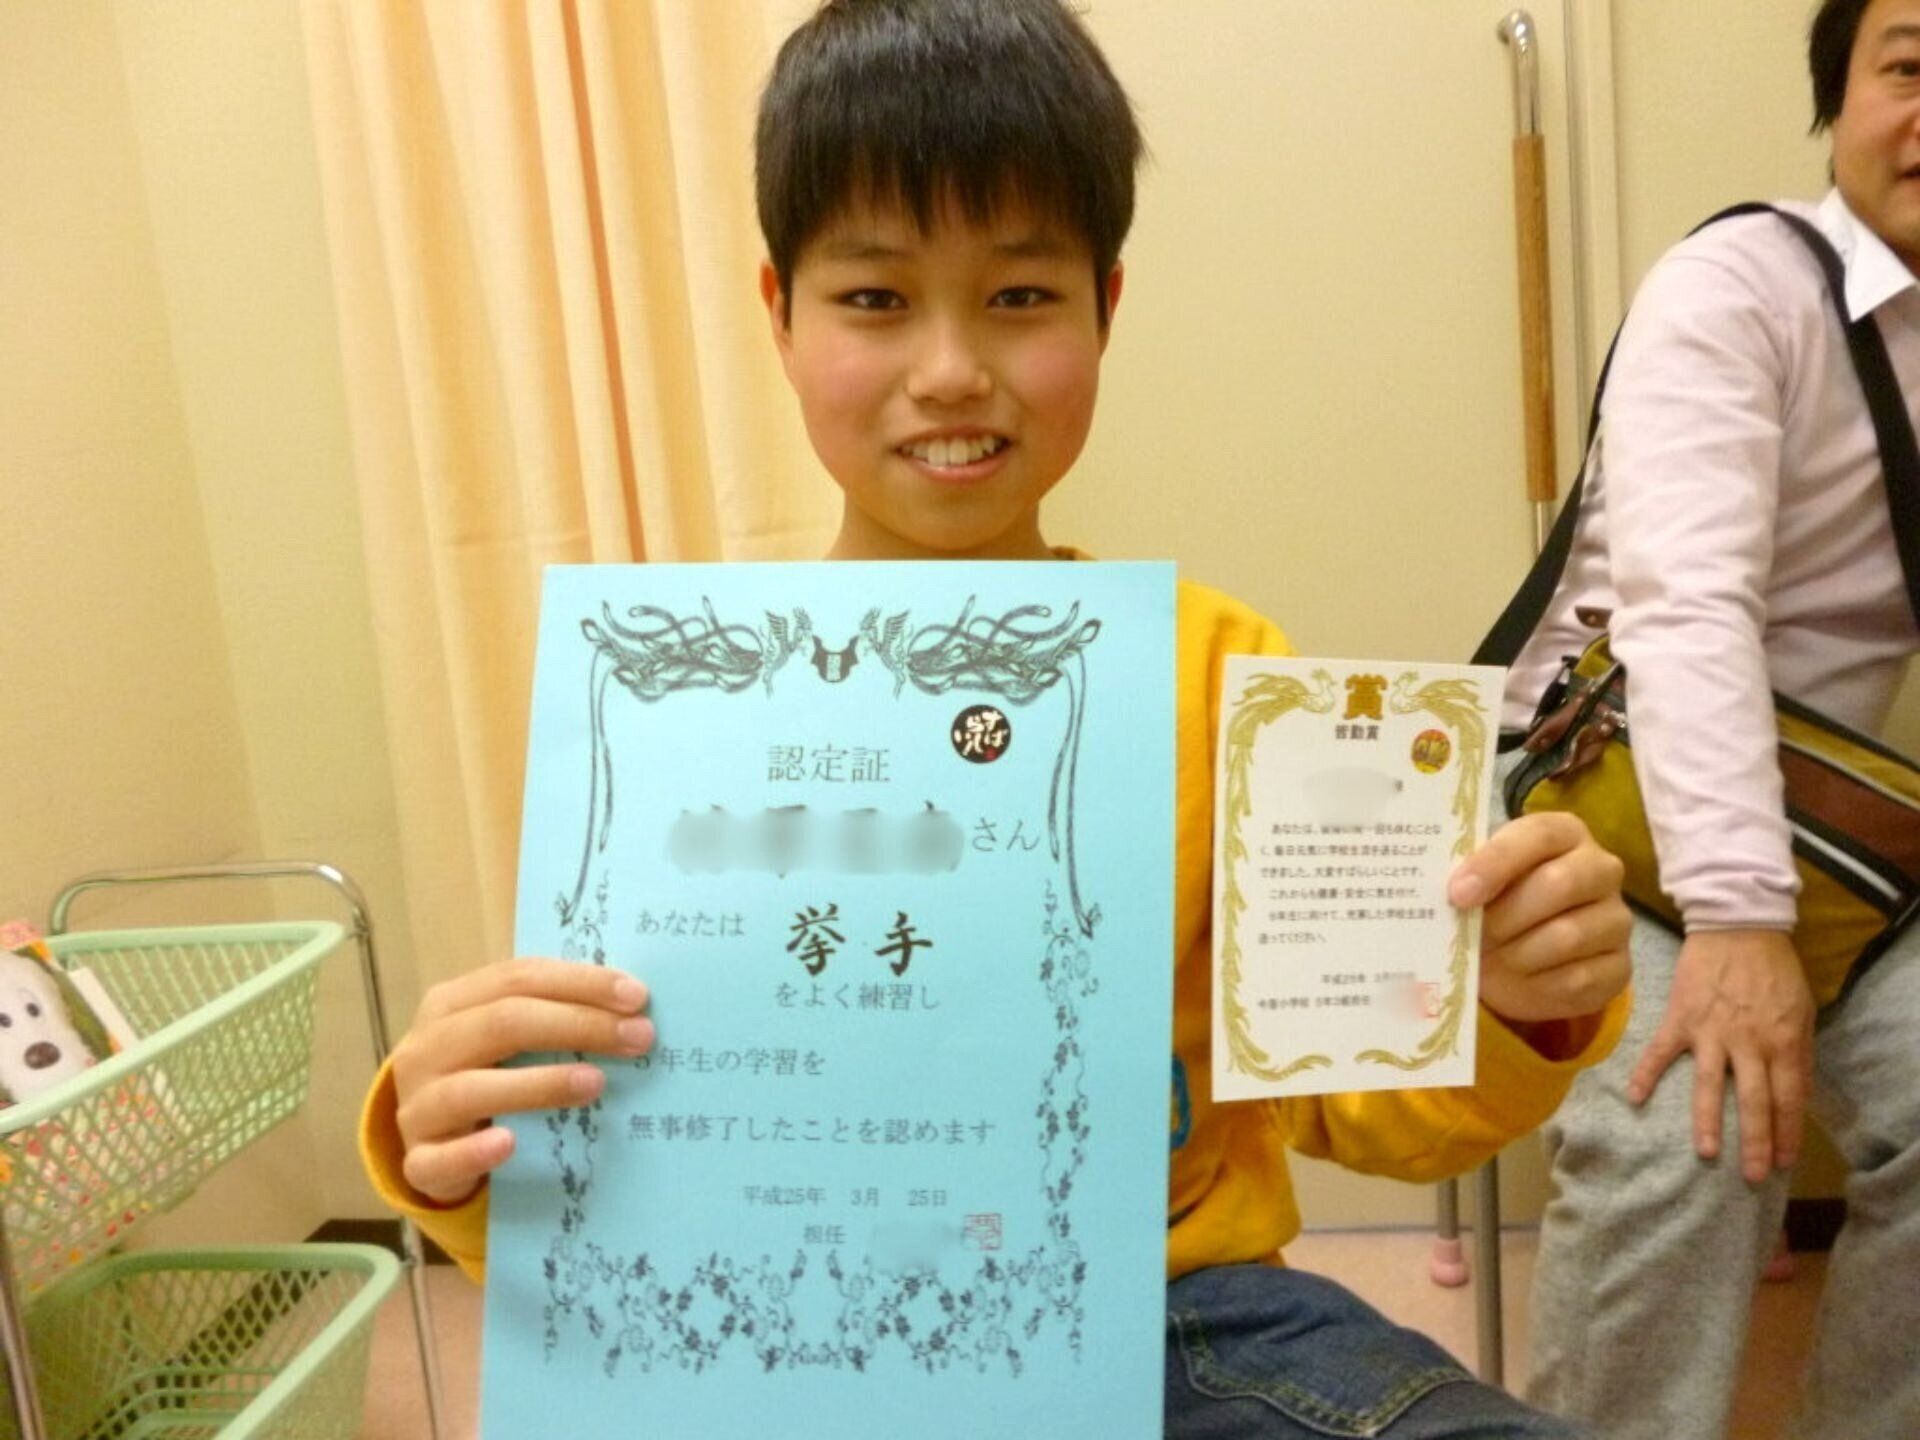 認定証
すばらしい
さん
あなたは 挙手
をよく練習し
5年生の学習を
無事修了したことを認めます
平成25年 3月 25日
担任
賞
皆勤賞
あなたは、 一回も休むことな
く、毎日元気に学校生活を送ることが
できました。大変すばらしいことです。
これからも健康・安全に気を付け、
6年生に向けて、充実した学校生活を
送ってください。
平成25年 3月
小学校 5年3組担任